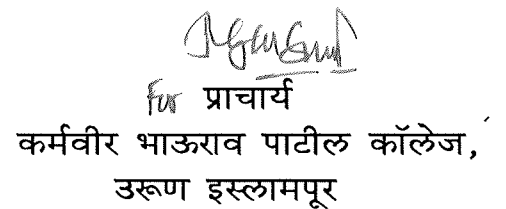 For प्राचार्य
कर्मवीर भाऊराव पाटील कॉलेज,
उरूण इस्लामपूर